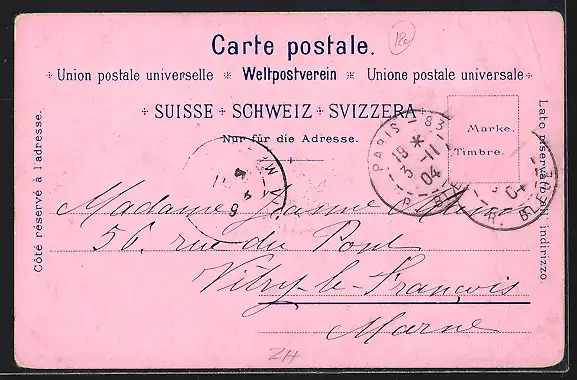 Carte postale.
Union postale universelle * Weltpostverein * Unione postale universale
SUISSE + SCHWEIZ + SVIZZERA
Nur für die Adresse.
Marke.
Timbre.
Côté réservé à l adresse.
Lato riservato all indirizzo.
PARIS - 83
18 *
3 -11
04
Madame Jeanne
56, rue du Pont
Vitry-le-François
Marne
ZH